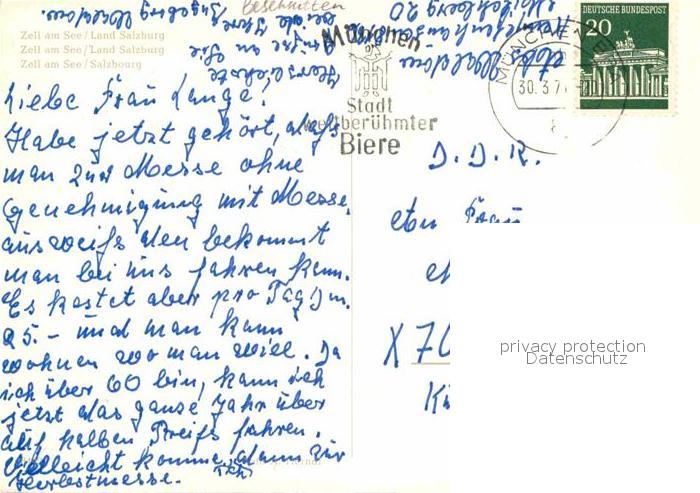 Beschnitten
Zell am See / Land Salzburg
Zell am See / Land Salzburg
Zell am See / Salzbourg
München
Stadt
weltberühmter
Biere
30.3.7
DEUTSCHE BUNDESPOST
20
Liebe Frau Lange!
Habe jetzt gehört, dass
man zur Messe ohne
Genehmigung mit Messe-
ausweiss den bekommt
man bei uns fahren kann.
Es kostet aber pro Tag D.M.
25.- und man kann
wohnen wo man will. Da
ich über 60 bin, kann ich
jetzt das ganze Jahr über
auf halben Preiss fahren.
Vielleicht komme dann zur
Herbstmesse. Ich
Herzlichste
Grüsse an Sie
alle Ihre
Ingeborg
D.D.R.
Frau
X 70
privacy protection
Datenschutz